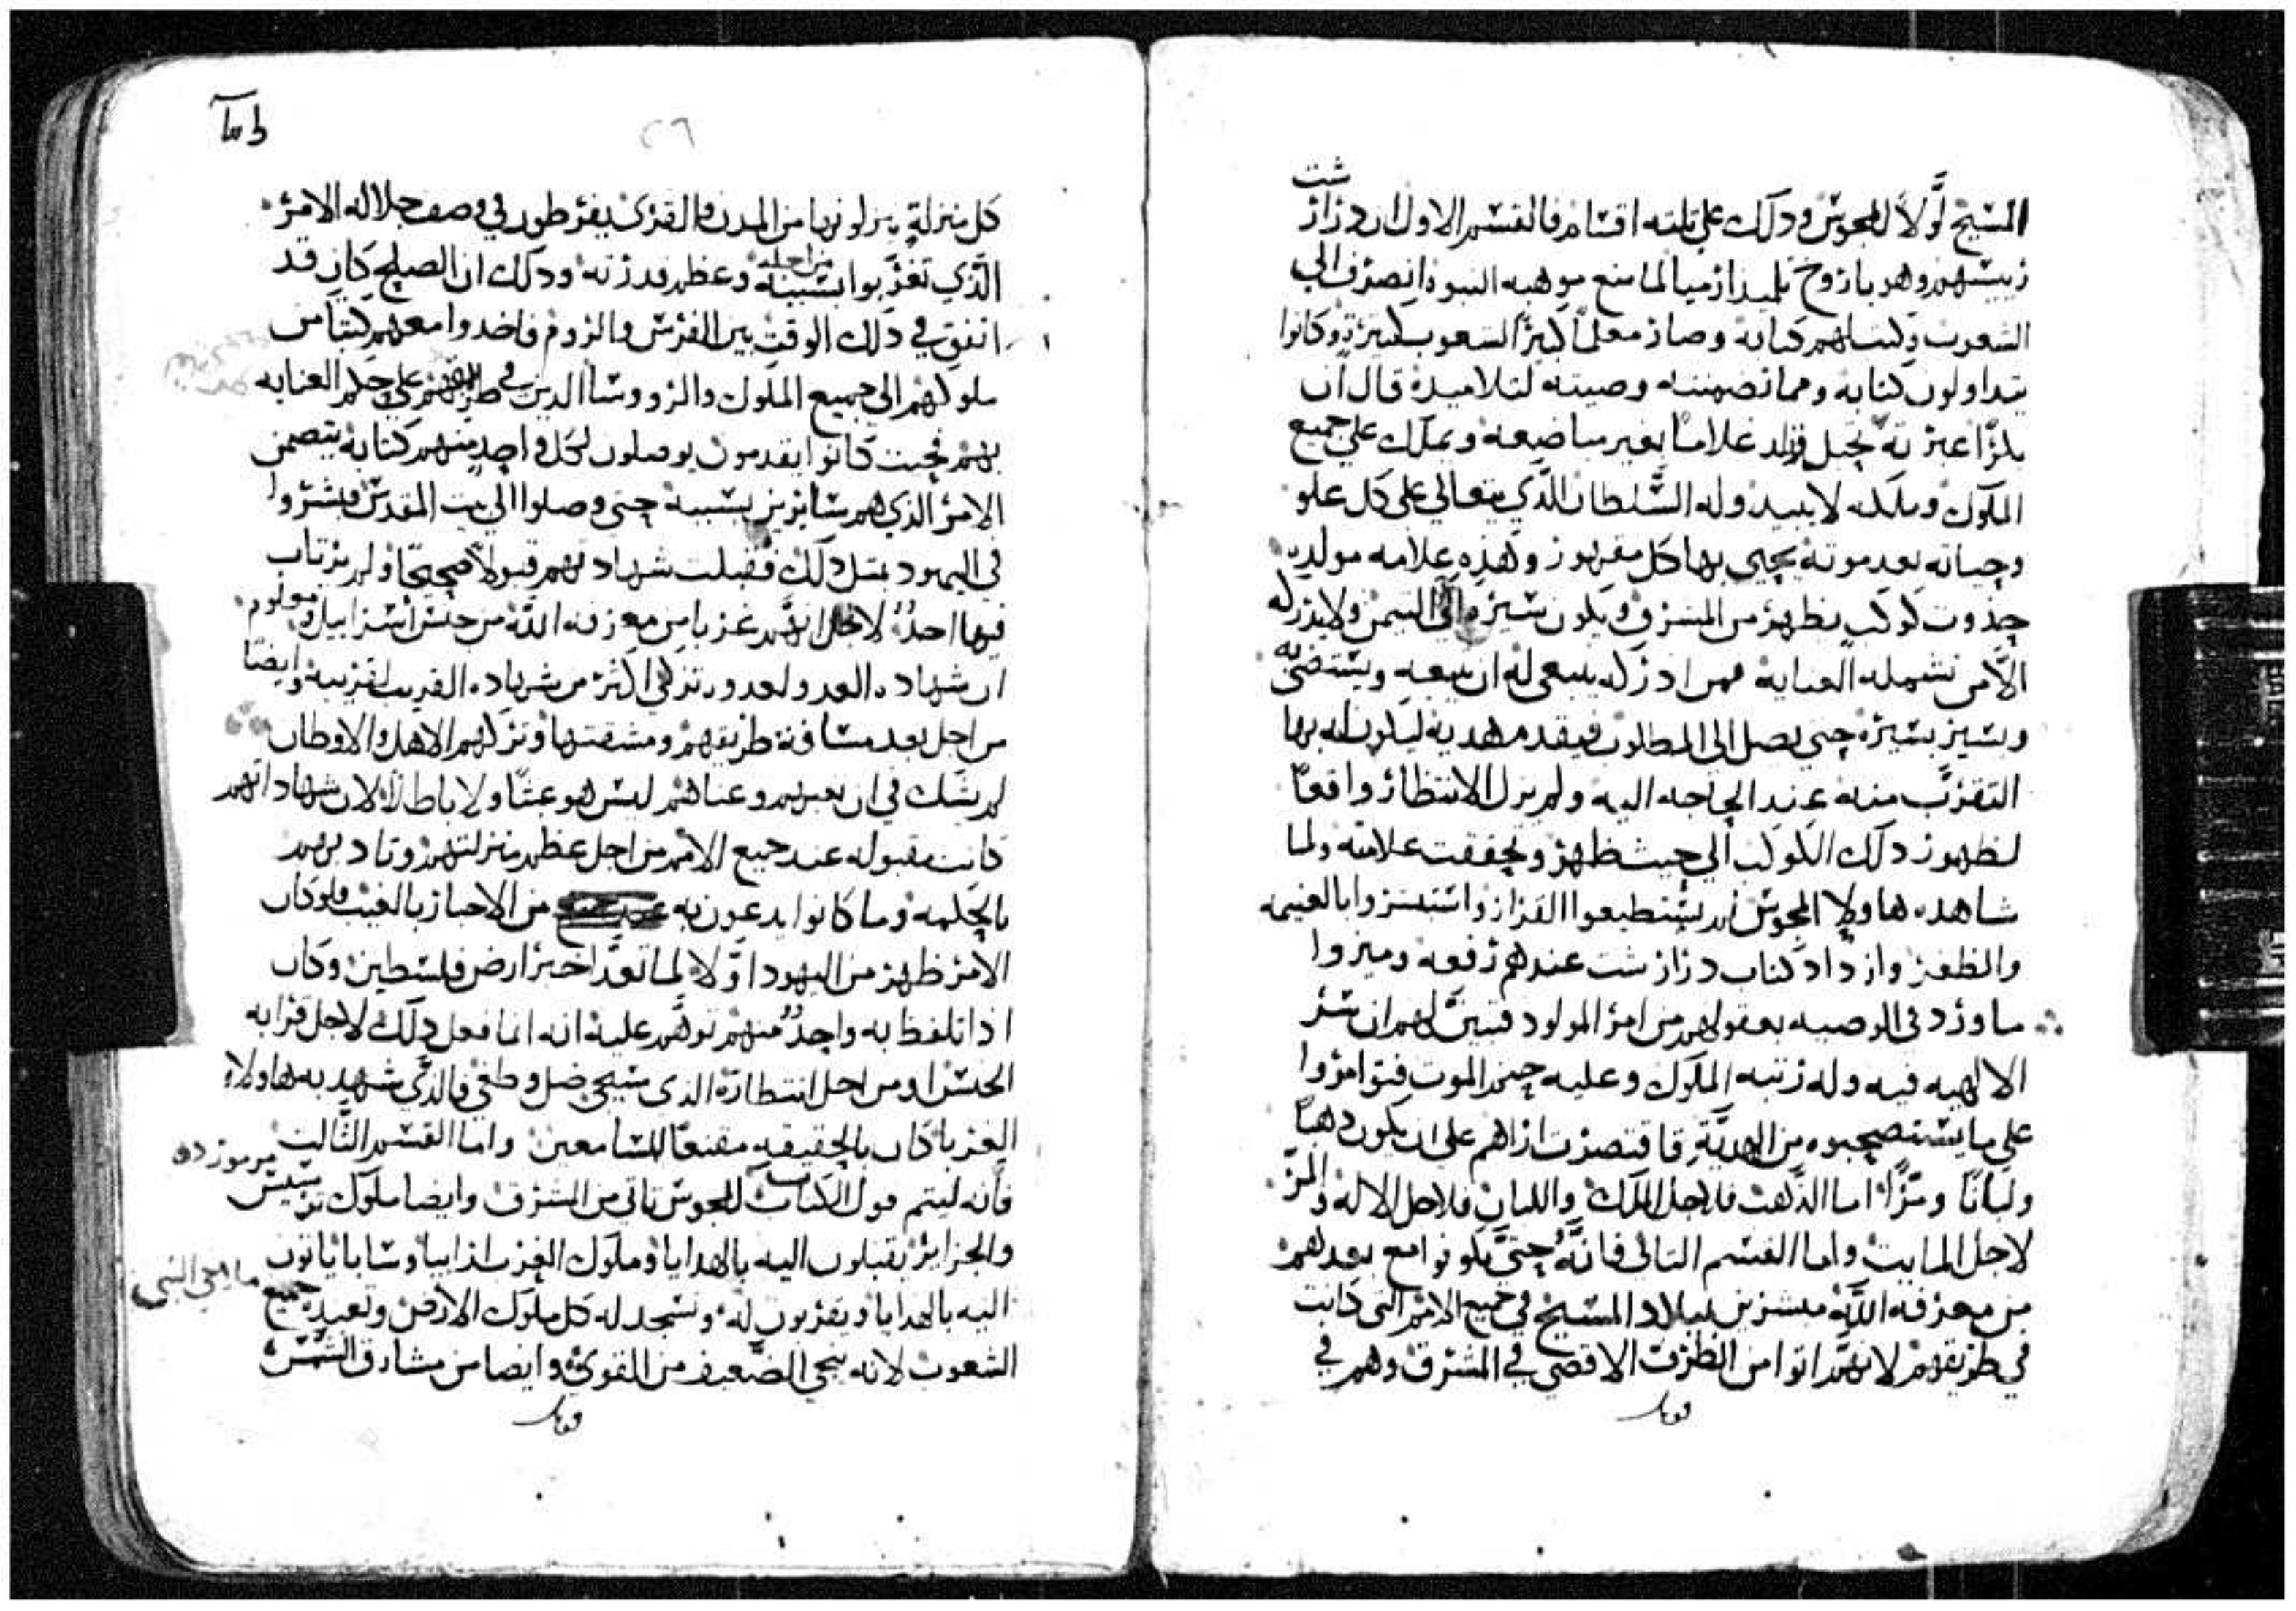 المسيح اولا للمجوس ودلك على تلته اقسام فالقسم الاول ان درازدشت
رييسهم وهو باروخ تلميد ارميا لما منع موهبه النبوه انصرف الي
الشعوب وكتب لهم كتابه وصار معلما كبيرا لشعوب كتيرة وكانوا
يتداولون كتابه ومما تضمنته وصيته لتلاميده قال ان
بكرا عبرانيه تحبل وتلد غلاما بغير مباضعه ويملك علي جميع
الملوك وملكه لا يبيد وله السلطان الدي يتعالي على كل علو
وحياته بعد موته يحيى بها كل مقهور وهذه علامه مولده
حدوت كوكب يظهر من المشرق ويكون سيره الى التيمن ولا يدركه
الا من تشمله العنايه فمن ادركه ينبغي له ان يتبعه ويستضي به
ويسير بسيره حتى يصل الى المطلوب فيقدم هديه ليكون له بها
التقرب منه عند الحاجه اليه ولم يزل الانتظار واقعا
لظهور دلك الكوكب الي حيث ظهر وتحققت علامته ولما
شاهده هاولاء المجوس لم يستطيعوا القرار واستبشروا بالغنيمه
والظفر وازداد كتاب درازدشت عندهم رفعه وميزوا
ما ورد في الوصيه بعقولهم من امر المولود فتبين لهم ان سر
الالهيه فيه وله رتبه الملوك وعليه حتم الموت فتوامروا
علي ما يستصحبوه من الهدية فاقتصرت اراهم على ان يكون دهبا
ولبانا ومرا اما الذهب فلاجل الملك واللبان فلاجل الاله والمر
لاجل المايت واما القسم التاني فانه حتى يكونوا مع بعدهم
من معرفه الله مبشرين بميلاد المسيح في جميع الامم التى كانت
في طريقهم لانهم اتوا من الطرف الاقصي في المشرق وهم في
قوبل
٢٦
كل منزلة ينزلونها من المدن والقرى يفرطون في وصف جلاله الامر
الذي تغربوا بسببه من اجله وعظم قدرته ودلك ان الصلح كان قد
اتفق في دلك الوقت بين الفرس والروم فاخدوا معهم كتبا من
ملوكهم الى جميع الملوك والرووسا الدين في طريقهم علي حكم العنايه
بهم فحيت كانوا يقدمون يوصلون لكل واحد منهم كتابه يتضمن
الامر الذي هم سايرين بسببه حتى وصلوا الى بيت المقدس فبشروا
في اليهود بمتل دلك فقبلت شهادتهم قبولا صحيحا ولم يرتاب
فيها احد لاجل انهم غربا من معرفه الله من جنس اسراييل ومعلوم
ان شهاده العدو لعدوه تزكي اكتر من شهاده القريب لقريبه وايضا
من اجل بعد مسافة طريقهم ومشقتها وتركهم الاهل والاوطان
لم يشك في ان تعبهم وعناهم ليس هو عبتا ولا باطلا لان شهاداتهم
كانت مقبوله عند جميع الامم من اجل عظم منزلتهم وتاديبهم
بالحكمه وما كانوا يدعون به من الاخبار بالغيب فلو كان
الامر ظهر من اليهود اولا لما تعدا خبره ارض فلسطين وكان
اذا تلفظ به واحد منهم توهم عليه انه انما فعل دلك لاجل قرابه
الجنس او من اجل انتظاره الدى سيجي ضل وطغي فالدي شهد به هاولاء
الغربا كان بالحقيقه مقنعا للسامعين واما القسم التالت
فانه ليتم قول الكتاب المجوس تاتي من المشرق وايضا ملوك ترسيس
والجزاير يقبلون اليه بالهدايا وملوك الغرب ارابيا وسابا ياتون
اليه بالهدايا ويقربون له وتسجد له كل ملوك الارض وتعبده جميع
الشعوب لانه ينجي الضعيف من القوي وايضا من مشارق الشمس
قوبل